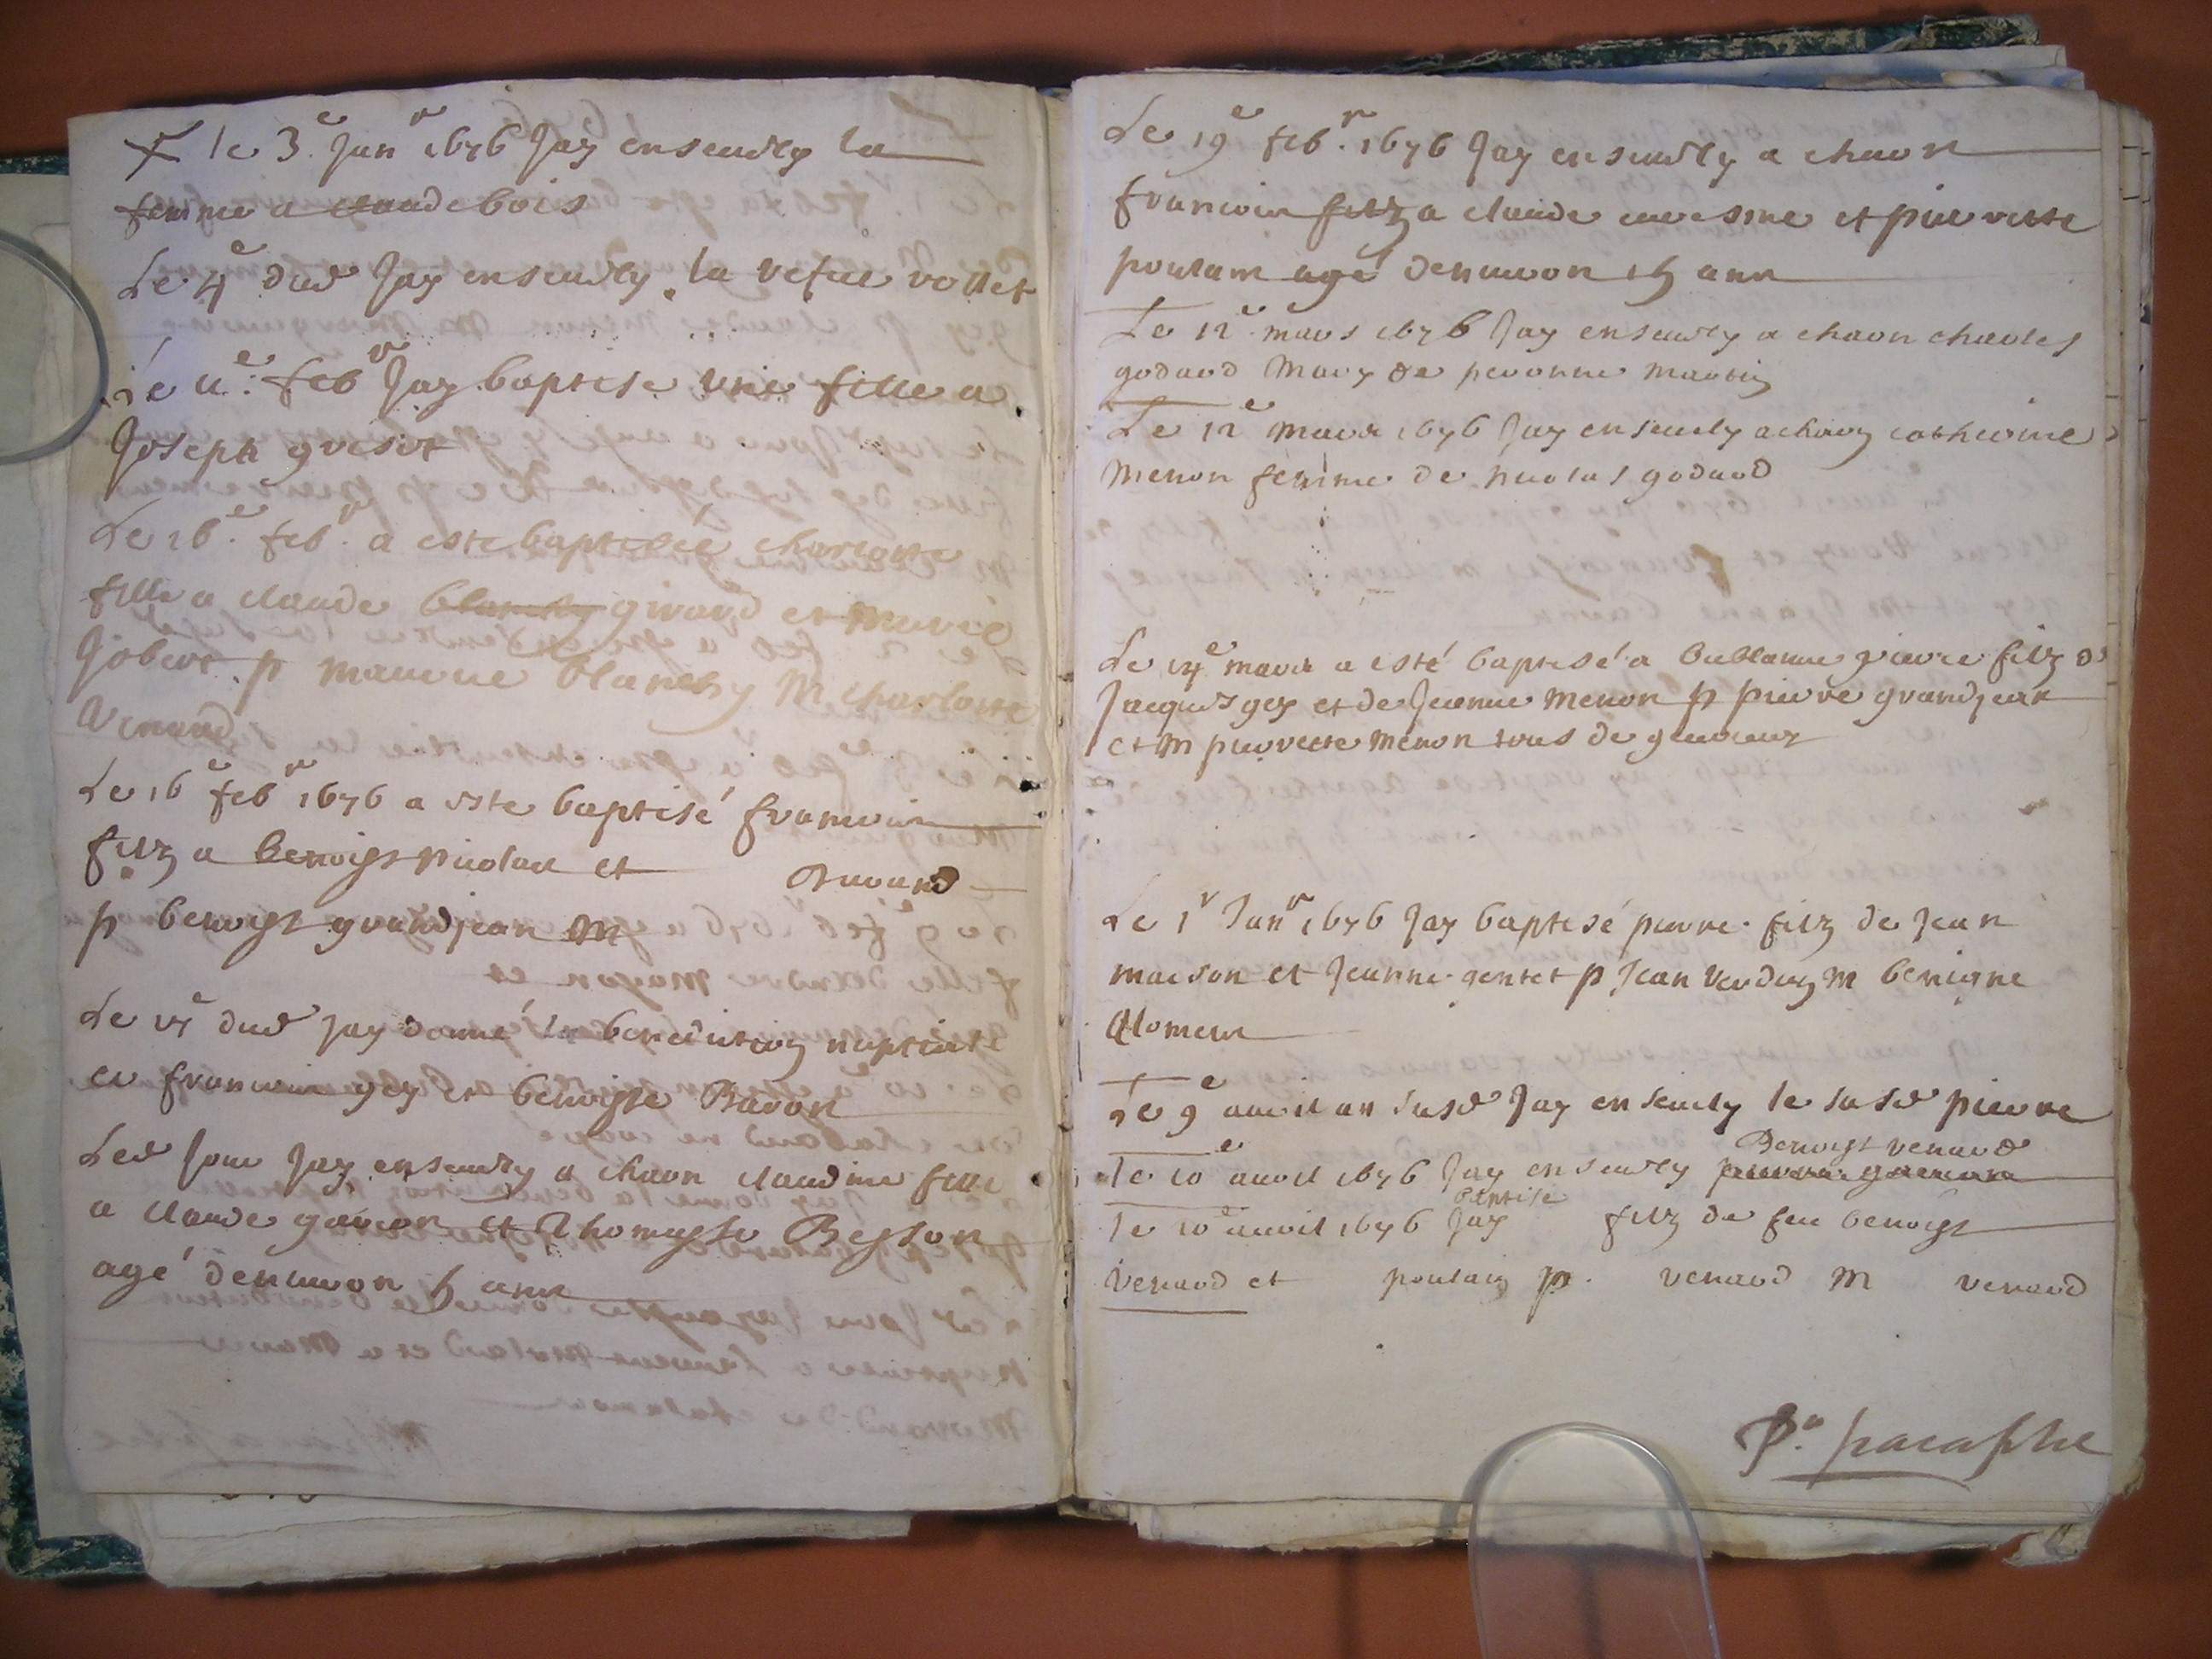 le 3.e Jan.r 1676 Jay enseuely la
femme a claude bois
Le 4e dud Jay enseuely la vefue vollet
Le 11e. feb.r Jay baptise une fille a
Joseph grisot
Le 16.e feb.r a este baptisée charlotte
fille a claude girard et marie
Jobert p maurice blanchy M charlotte
Le 16e febr 1676 a este baptisé francois
filz a benoist nicolas et
p benoist grandjean M
dud Jay donné la benediction nuptiale
a francois gey et benoiste Baron
Led Jour Jay enseuely a chaon claudine fille
a claude et Thomasse Besson
agé denuiron 5 ans
Le 19e feb.r 1676 Jay enseuely a chaon
francois filz a claude et pierrette
poulain agé denuiron 15 ans
Le 12e mars 1676 Jay enseuely a chaon charles
godard mary de peronne martin
Le 12e mars 1676 Jay enseuely a chaon catherine
menon femme de nicolas godard
Le 14e mars a esté baptisé a pierre filz de
Jacques gey et de Jeanne menon p pierre grandjean
et M pierrette menon tous de
Le 1r Janr 1676 Jay baptisé pierre filz de Jean
maison et Jeanne gentet p Jean Verduy M benigne
Le 9e auril an susd Jay enseuely le susd pierre
Benoist venard
le 10e auril 1676 Jay enseuely
baptise
le 10e auril 1676 Jay filz de feu benoist
venard et poulain p. venard M venard